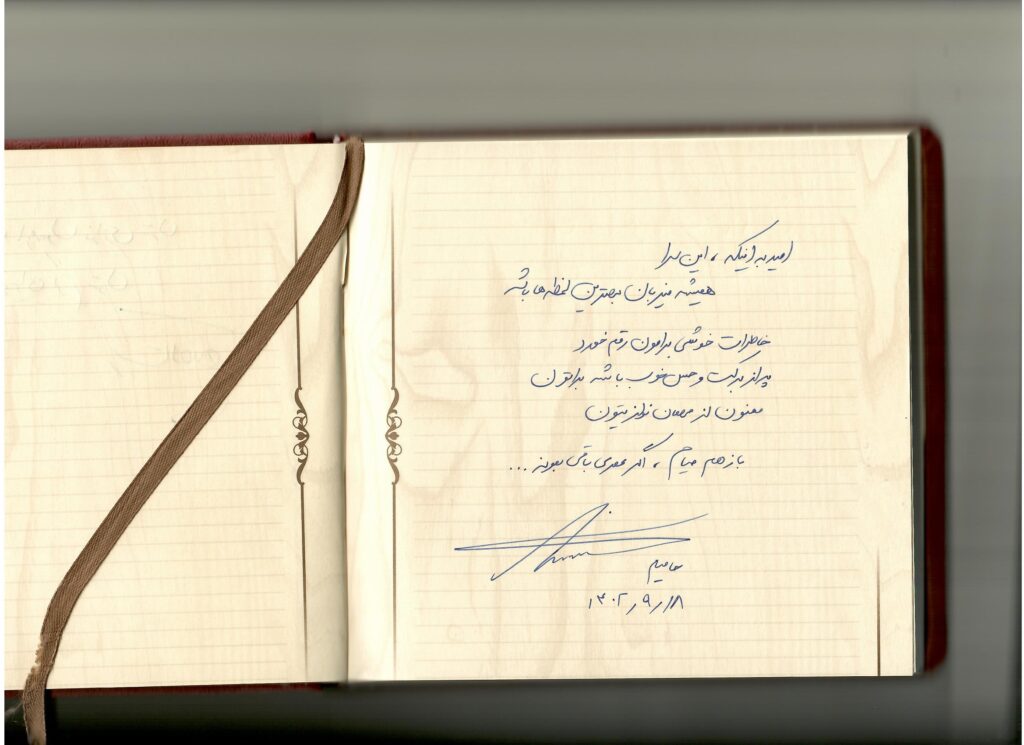 امید به اینکه ، این سرا
همیشه میزبان بهترین لحظه ها باشه
خاطرات خوشی برامون رقم خورد
پر از برکت و حس خوب باشه براتون
ممنون از مهمان نوازیتون
باز هم میام ، اگر عمری باقی بمونه ...
۱۴۰۲٫۹٫۱۸